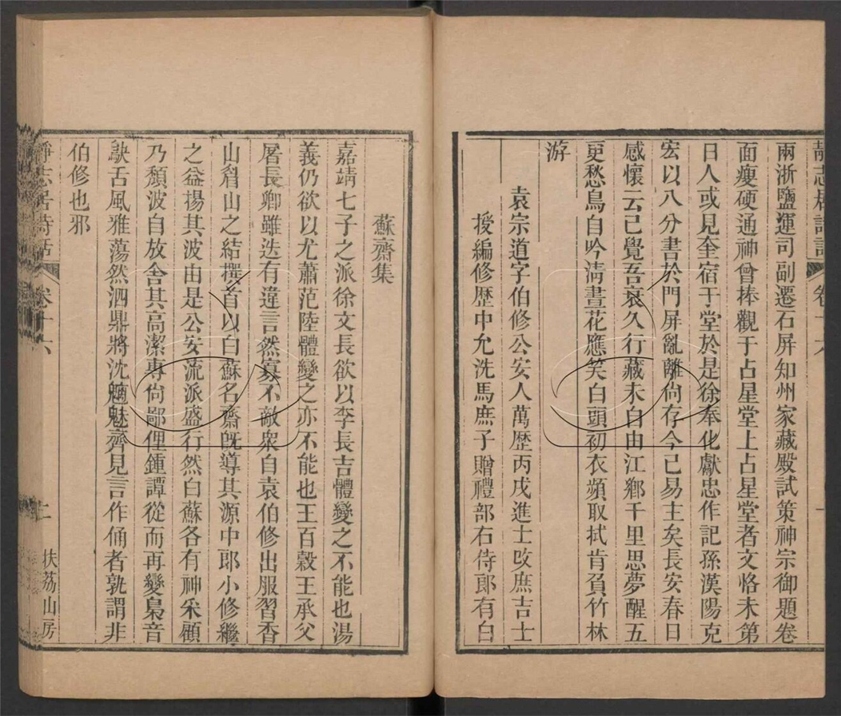 靜志居詩話 卷十六 一
兩浙鹽運司副遷石屏知州家藏殿試策神宗御題卷
面瘦硬通神曾捧觀于占星堂上占星堂者文恪未第
日人或見奎宿于堂於是徐奉化獻忠作記孫漢陽克
宏以八分書於門屏亂離尙存今已易主矣長安春日
感懷云已覺吾衰久行藏未自由江鄉千里思夢醒五
更愁鳥自吟淸晝花應笑白頭初衣蘋取拭肯負竹林
游
袁宗道字伯修公安人萬歷丙戌進士改庶吉士
授編修歷中允洗馬庶子贈禮部右侍郞有白
蘇齋集
嘉靖七子之派徐文長欲以李長吉體變之不能也湯
義仍欲以尤蕭范陸體變之亦不能也王百穀王承父
屠長卿雖迭有違言然寡不敵衆自袁伯修出服習香
山眉山之結撰首以白蘇名齋旣導其源中郞小修繼
之益揚其波由是公安流派盛行然白蘇各有神采顧
乃頽波自放舍其高潔專尙鄙俚鍾譚從而再變梟音
鴃舌風雅蕩然泗鼎將沈魑魅齊見言作俑者孰謂非
伯修也邪
靜志居詩話 卷十六 二 扶荔山房